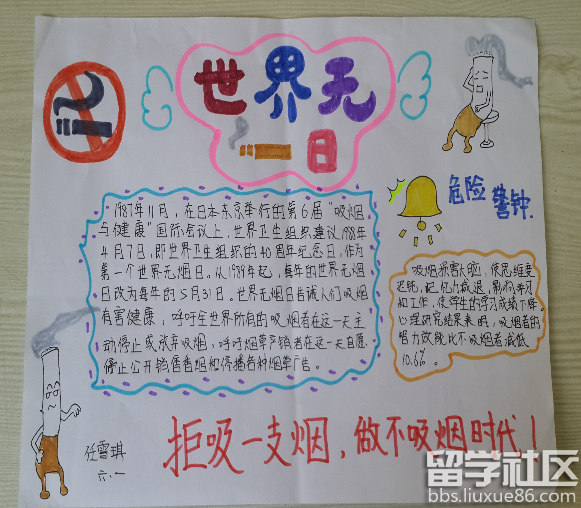 世界无
日
1987年11月，在日本东京举行的第6届“吸烟
与健康”国际会议上，世界卫生组织建议1988年
4月7日，即世界卫生组织的40周年纪念日，作为
第一个世界无烟日。从1989年起，每年的世界无烟
日改为每年的5月31日。世界无烟日告诫人们吸烟
有害健康，呼吁全世界所有的吸烟者在这一天主
动停止或放弃吸烟，呼吁烟草产销者在这一天自愿
停止公开销售香烟和停播各种烟草广告。
危险
警钟.
吸烟损害大脑，使思维变
迟钝，记忆力减退，影响学习
和工作，使学生的学习成绩下降。
心理研究结果表明，吸烟者的
智力效能比不吸烟者减低
10.6%。
拒吸一支烟，做不吸烟时代！
任雪琪
六.一
留学社区
bbs.liuxue86.com